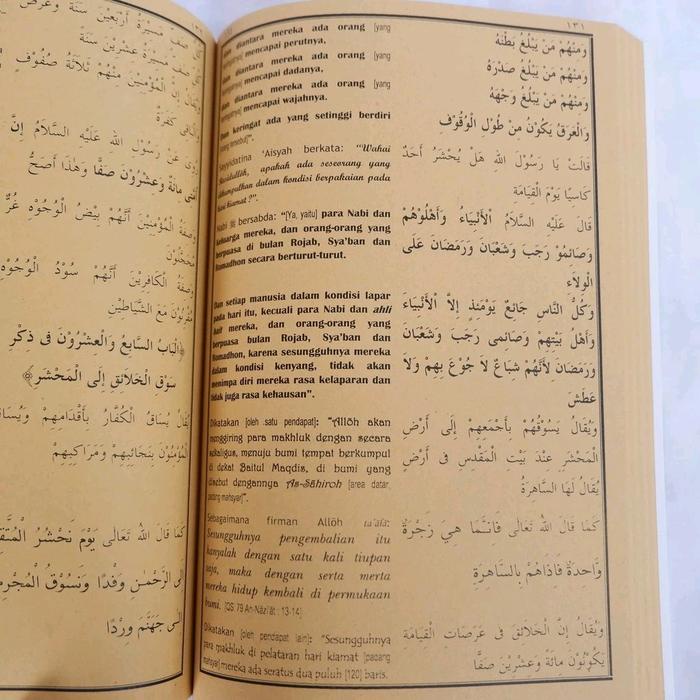 ١٣١
dan diantara mereka ada orang [yang
mencapai perutnya,
dan diantara mereka ada orang [yang
mencapai dadanya,
dan diantara mereka ada orang [yang
mencapai wajahnya.
Dan keringat ada yang setinggi berdiri
Sayyidatina ‘Aisyah berkata: “Wahai
Rasulullah, apakah ada seseorang yang
dikumpulkan dalam kondisi berpakaian pada
hari kiamat?”.
Nabi ﷺ bersabda: “[Ya, yaitu] para Nabi dan
keluarga mereka, dan orang-orang yang
berpuasa di bulan Rojab, Sya’ban dan
Romadhon secara berturut-turut.
Dan setiap manusia dalam kondisi lapar
pada hari itu, kecuali para Nabi dan ahli
bait mereka, dan orang-orang yang
berpuasa bulan Rojab, Sya’ban dan
Romadhon, karena sesungguhnya mereka
dalam kondisi kenyang, tidak akan
menimpa diri mereka rasa kelaparan dan
tidak juga rasa kehausan”.
Dikatakan [oleh satu pendapat]: “Allôh akan
menggiring para makhluk dengan secara
sekaligus, menuju bumi tempat berkumpul
di dekat Baitul Maqdis, di bumi yang
disebut dengannya As-Sâhiroh [area datar,
padang mahsyar]”.
Sebagaimana firman Allôh ta’ala:
Sesungguhnya pengembalian itu
hanyalah dengan satu kali tiupan
saja, maka dengan serta merta
mereka hidup kembali di permukaan
bumi. [QS 79 An-Nâzi’ât : 13-14]
Dikatakan [oleh pendapat lain]: “Sesungguhnya
para makhluk di pelataran hari kiamat [padang
mahsyar] mereka ada seratus dua puluh [120] baris.
وَمِنْهُمْ مَنْ يَبْلُغُ بَطْنَهُ
وَمِنْهُمْ مَنْ يَبْلُغُ صَدْرَهُ
وَمِنْهُمْ مَنْ يَبْلُغُ وَجْهَهُ
وَالْعَرَقُ يَكُوْنُ مِنْ طُوْلِ الْوُقُوْفِ
قَالَتْ يَا رَسُوْلَ اللهِ هَلْ يُحْشَرُ أَحَدٌ
كَاسِيًا يَوْمَ الْقِيَامَةِ
قَالَ عَلَيْهِ السَّلَامُ اَلْأَنْبِيَاءُ وَأَهْلُوْهُمْ
وَصَائِمُوْ رَجَبَ وَشَعْبَانَ وَرَمَضَانَ عَلَى
الْوِلَاءِ
وَكُلُّ النَّاسِ جَائِعٌ يَوْمَئِذٍ إِلَّا الْأَنْبِيَاءَ
وَأَهْلَ بَيْتِهِمْ وَصَائِمِى رَجَبَ وَشَعْبَانَ
وَرَمَضَانَ لِأَنَّهُمْ شِبَاعٌ لَا جُوْعَ بِهِمْ وَلَا
عَطَشَ
وَيُقَالُ يَسُوْقُهُمْ بِأَجْمَعِهِمْ إِلَى أَرْضِ
الْمَحْشَرِ عِنْدَ بَيْتِ الْمَقْدِسِ فِى أَرْضٍ
يُقَالُ لَهَا السَّاهِرَةُ
كَمَا قَالَ اللهُ تَعَالَى فَاِنَّمَا هِيَ زَجْرَةٌ
وَاحِدَةٌ فَاِذَاهُمْ بِالسَّاهِرَةِ
وَيُقَالُ إِنَّ الْخَلَائِقَ فِى عَرَصَاتِ الْقِيَامَةِ
يَكُوْنُوْنَ مِائَةً وَعِشْرِيْنَ صَفًّا
صَفٍّ مَسِيْرَةُ أَرْبَعِيْنَ سَنَةً وَعَرْضُ
صَفٍّ مَسِيْرَةُ عِشْرِيْنَ سَنَةً
إِنَّ الْمُؤْمِنِيْنَ مِنْهُمْ ثَلَاثَةُ صُفُوْفٍ
وَالْبَاقِى كَفَرَةٌ
عَنْ رَسُوْلِ اللهِ عَلَيْهِ السَّلَامُ إِنَّ
مِائَةٌ وَعِشْرُوْنَ صَفًّا وَهٰذَا أَصَحُّ
وَصِفَةُ الْمُؤْمِنِيْنَ أَنَّهُمْ بِيْضُ الْوُجُوْهِ غُرٌّ
مُحَجَّلُوْنَ
وَصِفَةُ الْكَافِرِيْنَ أَنَّهُمْ سُوْدُ الْوُجُوْهِ
مُقَرَّنُوْنَ مَعَ الشَّيَاطِيْنِ
﴿اَلْبَابُ السَّابِعُ وَالْعِشْرُوْنَ فِى ذِكْرِ
سَوْقِ الْخَلَائِقِ إِلَى الْمَحْشَرِ﴾
يُقَالُ يُسَاقُ الْكُفَّارُ بِأَقْدَامِهِمْ
الْمُؤْمِنُوْنَ بِنَجَائِبِهِمْ وَمَرَاكِبِهِمْ
كَمَا قَالَ اللهُ تَعَالَى يَوْمَ نَحْشُرُ
إِلَى الرَّحْمٰنِ وَفْدًا وَنَسُوْقُ
إِلَى جَهَنَّمَ وِرْدًا